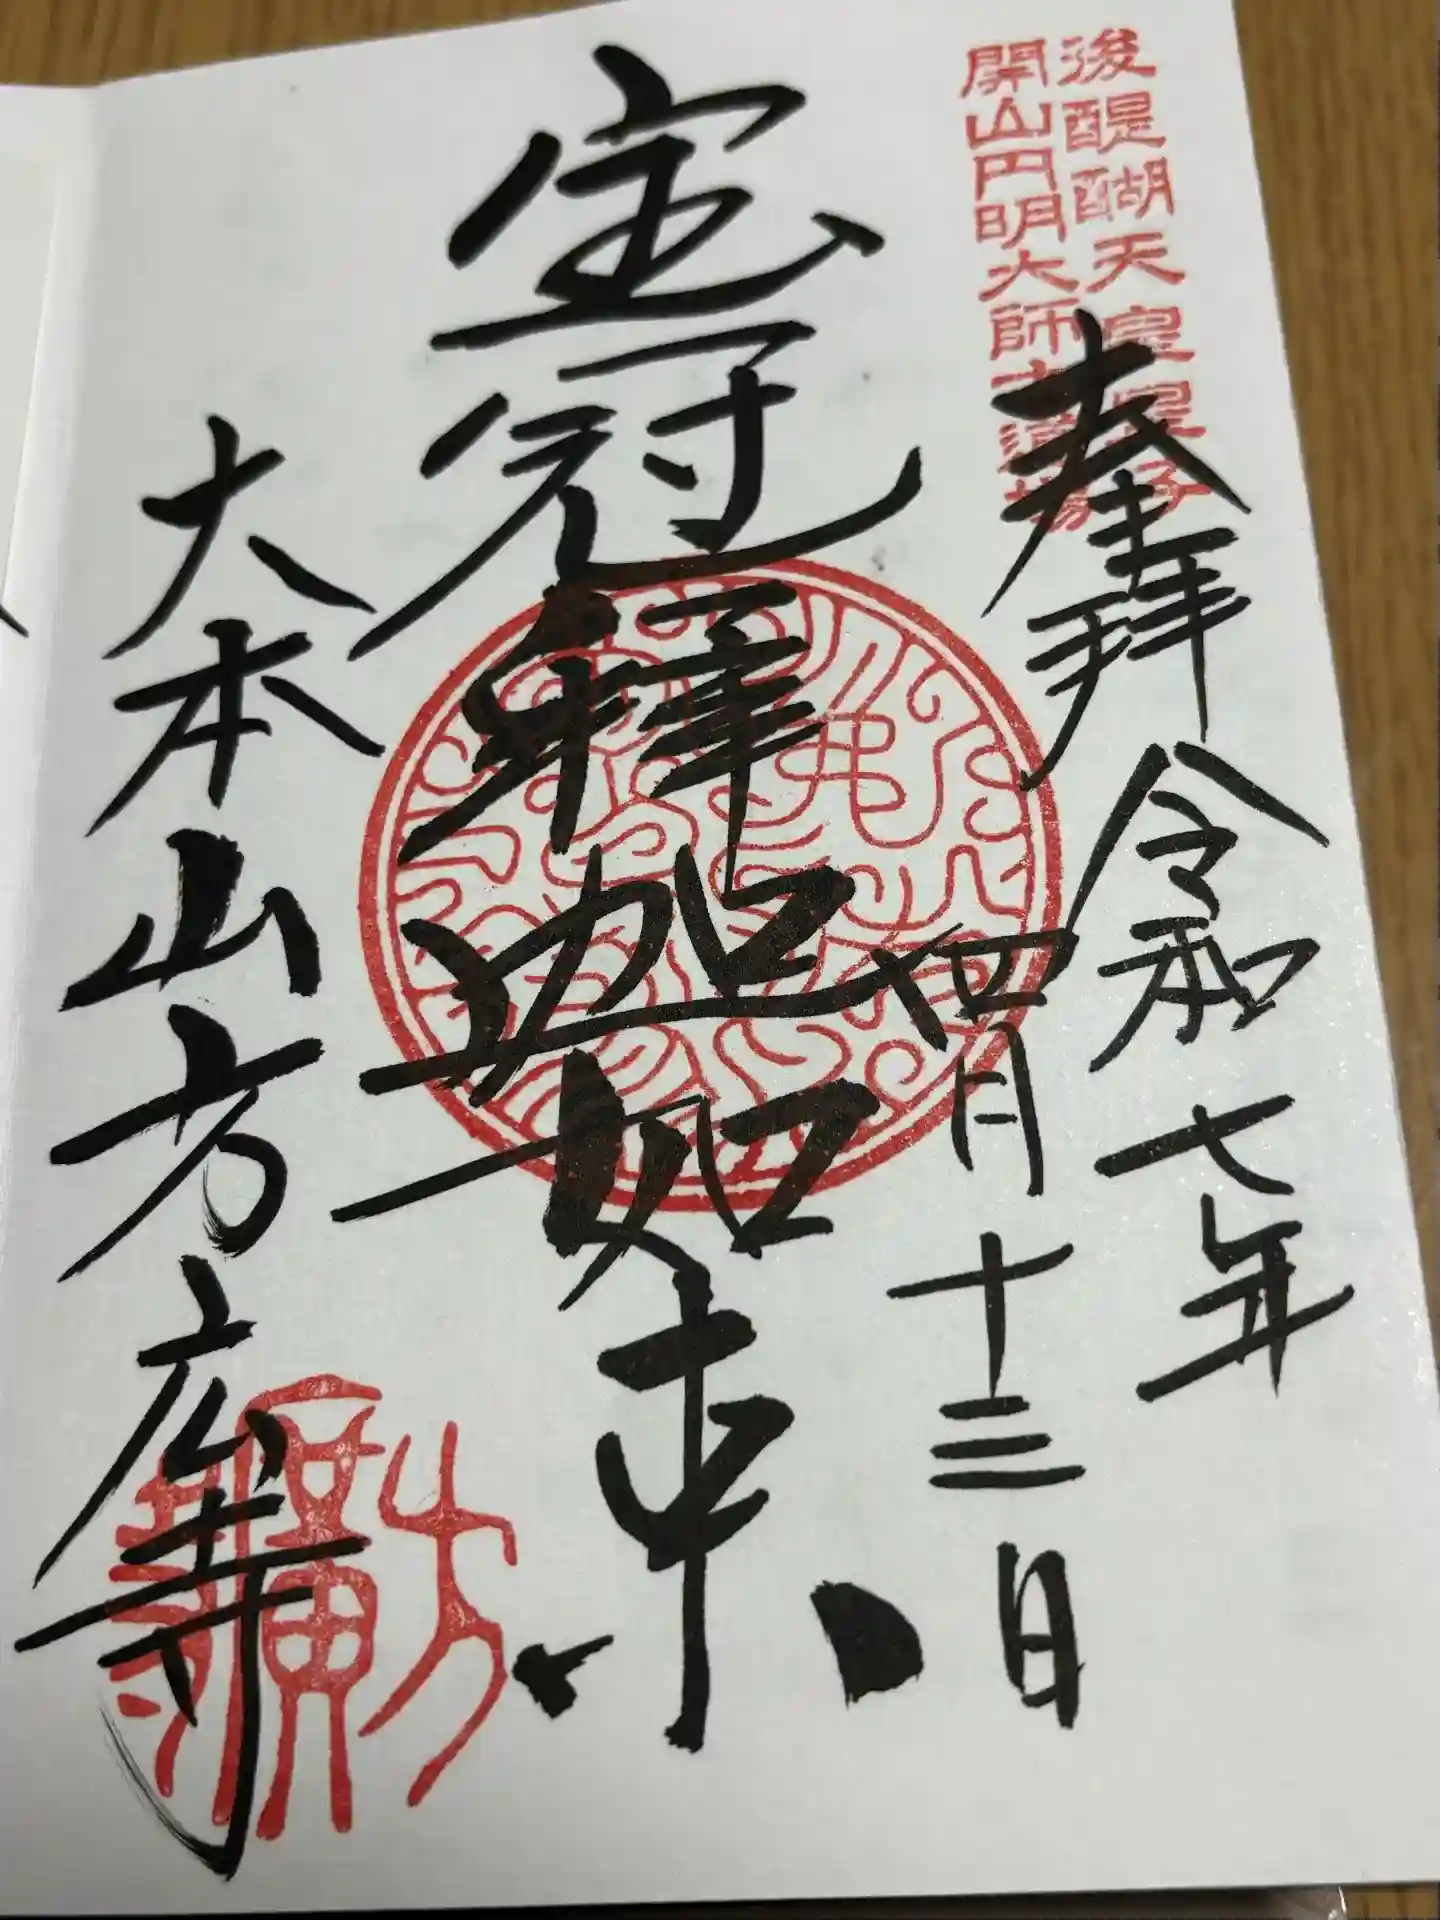 後醍醐天皇皇子
開山円明大師古道場
奉拝
令和七年
四月十三日
宝冠釋迦如来
大本山方広寺
方廣寺